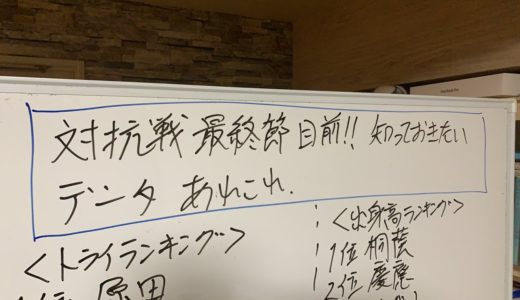 対抗戦 最終節目前!! 知っておきたい
データ あれこれ.
<トライランキング>
原田
<出身高ランキング>
1位 桐蔭
2位 慶應